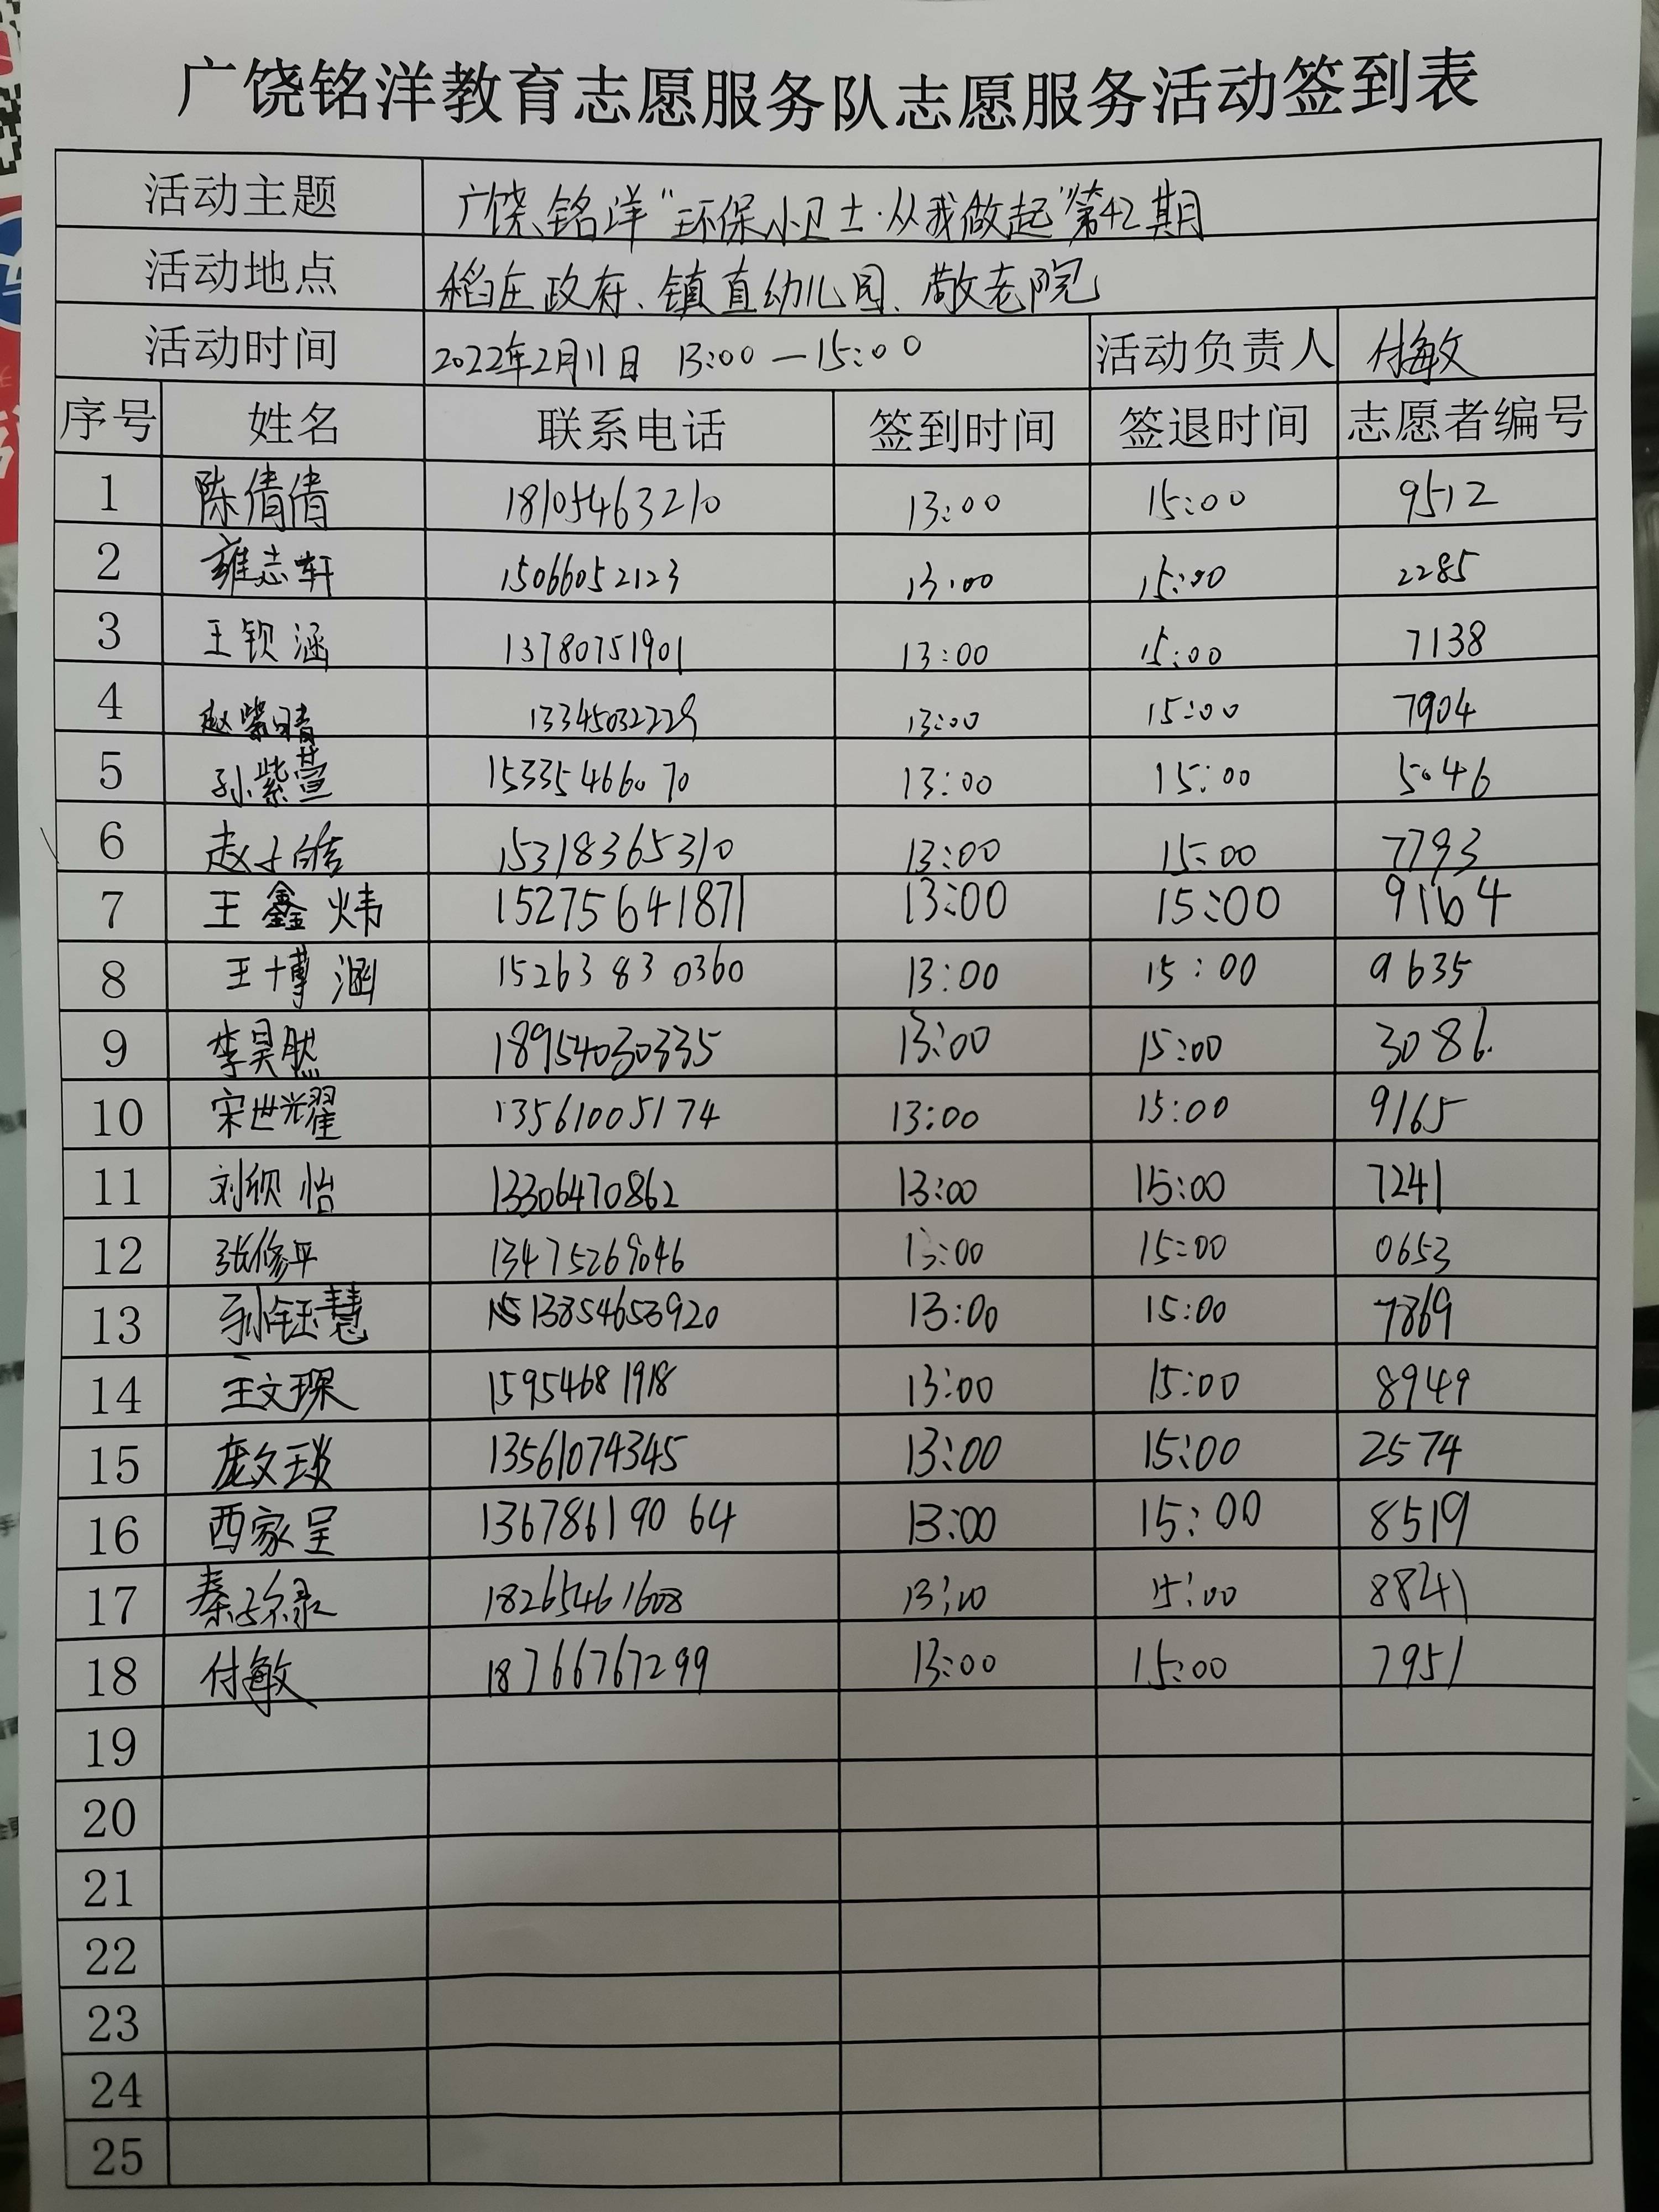 广饶铭洋教育志愿服务队志愿服务活动签到表
活动主题 广饶铭洋“环保小卫士·从我做起”第42期
活动地点 稻庄政府、镇直幼儿园、敬老院
活动时间 2022年2月11日 13:00—15:00 活动负责人 付敏
序号 姓名 联系电话 签到时间 签退时间 志愿者编号
1 陈倩倩 18105463210 13:00 15:00 9512
2 雍志轩 15066052123 13:00 15:00 2285
3 王钡涵 13780751901 13:00 15:00 7138
4 赵紫晴 13345032229 13:00 15:00 7904
5 孙紫萱 15335466070 13:00 15:00 5046
6 赵子皓 15318365310 13:00 15:00 7793
7 王鑫炜 15275641871 13:00 15:00 9164
8 王博涵 15263830360 13:00 15:00 9635
9 李昊然 18954030335 13:00 15:00 3086
10 宋世耀 13561005174 13:00 15:00 9165
11 刘欣怡 13306470862 13:00 15:00 7241
12 张修平 13475269046 13:00 15:00 0653
13 孙钰慧 13854653920 13:00 15:00 7869
14 王文琛 15954681918 13:00 15:00 8949
15 庞文琰 13561074345 13:00 15:00 2574
16 西家呈 13678619064 13:00 15:00 8519
17 秦子禄 18265461608 13:00 15:00 8841
18 付敏 18766767299 13:00 15:00 7951
19
20
21
22
23
24
25